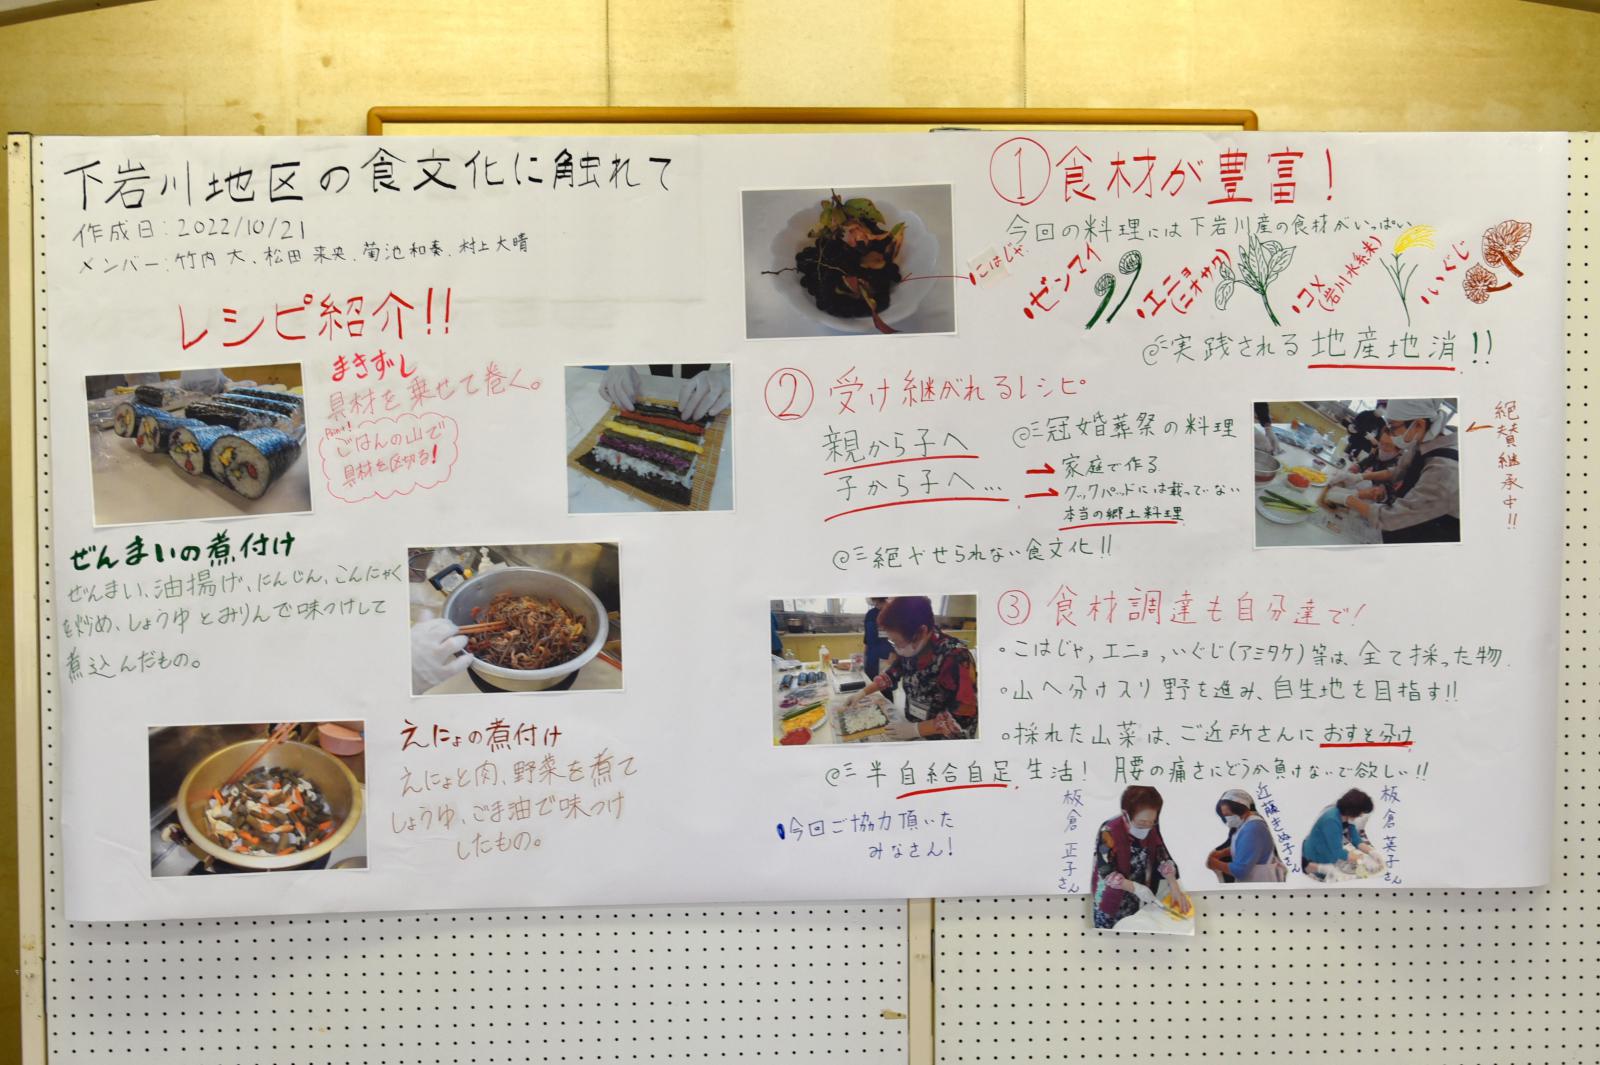 下岩川地区の食文化に触れて
作成日:2022/10/21
メンバー:竹内 大、松田 来央、菊池 和奏、村上 大晴
レシピ紹介!!
まきずし
具材を乗せて巻く。
Point!
ごはんの山で
具材を区切る!
ぜんまいの煮付け
ぜんまい、油揚げ、にんじん、こんにゃく
を炒め、しょうゆとみりんで味つけして
煮込んだもの。
えにょの煮付け
えにょと肉、野菜を煮て
しょうゆ、ごま油で味つけ
したもの。
①食材が豊富!
今回の料理には下岩川産の食材がいっぱい
こはじゃ
ゼンマイ
エニョ
(ニオサク)
コメ
(岩川水系米)
いぐじ
実践される地産地消!!
②受け継がれるレシピ
親から子へ
子から子へ…
冠婚葬祭の料理
→家庭で作る
→クックパッドには載ってない
本当の郷土料理
絶やせられない食文化!!
絶賛継承中!!
③食材調達も自分達で!
・こはじゃ,エニョ,いぐじ(アミタケ)等は、全て採った物.
・山へ分け入り野を進み、自生地を目指す!!
・採れた山菜は、ご近所さんにおすそ分け
半自給自足生活! 腰の痛さにどうか負けないで欲しい!!
今回ご協力頂いた
みなさん!
板倉 正子さん
近藤きぬ子さん
板倉 英子さん